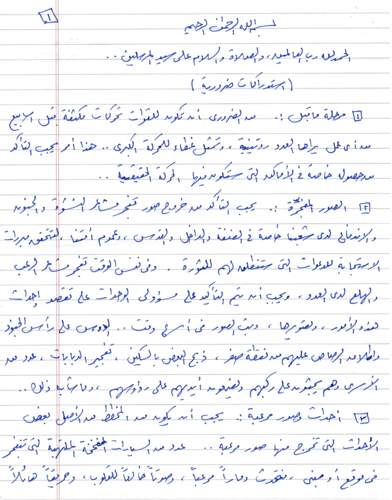 ١
بسم الله الرحمن الرحيم
الحمد لله رب العالمين، والصلاة والسلام على سيد المرسلين ..
(استدراكات ضرورية)
١ مرحلة ما قبل :. من الضروري أن تكون للقوات تحركات مكثفة قبل أسابيع
من أي عمل يراها العدو روتينية، وتشكل غطاء للحركة الكبرى .. هذا أمر يجب التأكد
من حصوله خاصة في الأماكن التي ستكون فيها الحركة الحقيقية ..
٢ الصور المفجرة :. يجب التأكد من خروج صور تفجر مشاعر النشوة والجنون
والاندفاع لدى شعبنا خاصة في الضفة والداخل والقدس، وعموم أمتنا، لتتحقق
الاستجابة للدعوات التي ستنطلق لهم للثورة . وفي نفس الوقت تفجر مشاعر الرعب
والهلع لدى العدو، ويجب أن يتم التأكيد على مسؤولي الوحدات على تقصد إحداث
هذه الأمور، وتصويرها، وبث الصور في أسرع وقت .. الدوس على رأس الجنود
وإطلاق الرصاص عليهم من نقطة صفر، ذبح البعض بالسكين، تفجير الدبابات، عدد من
الأسرى وهم يجثون على ركبهم ويضعون أيديهم على رؤوسهم، وما شابه ذلك..
٣ أحداث وصور مرعبة :. يجب أن يكون من المخطط من الأصل بعض
الأحداث التي تخرج منها صور مرعبة ... عدد من السيارات المفخخة الملتهبة التي تنفجر
في موقع أو مبنى، فتحدث دماراً مرعباً، وصوتاً للقلوب، وحريقاً هائلاً